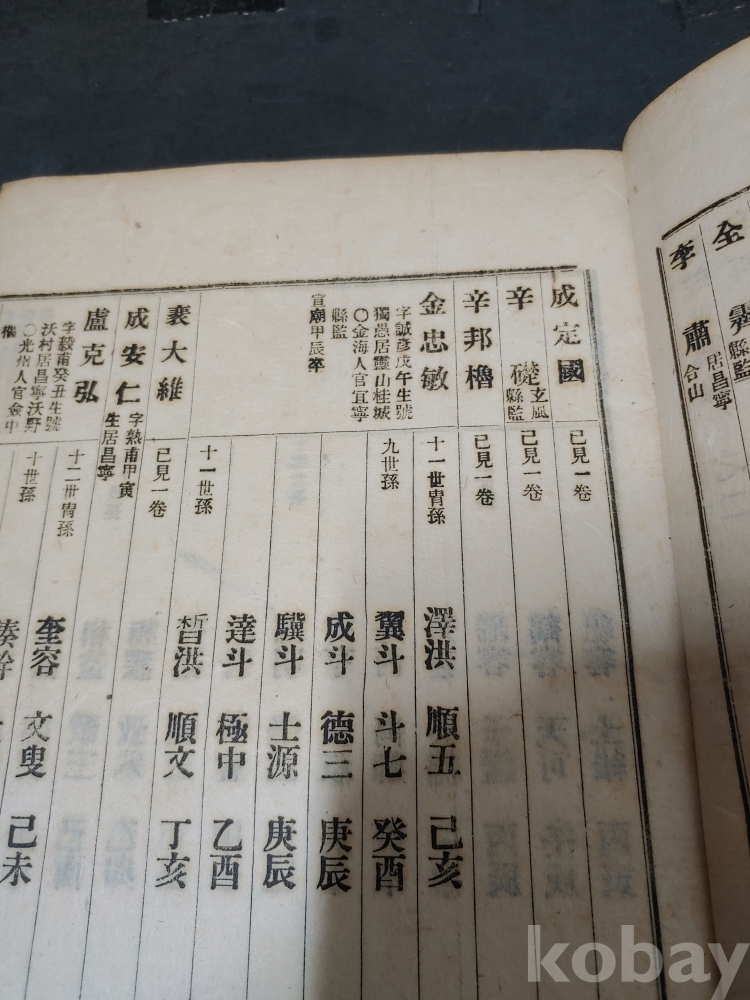 金
李
縣監
居昌寧
蕭
合山
成定國
已見一卷
辛 礎
玄風
縣監
已見一卷
辛邦櫓
已見一卷
金忠敏
字誠彦戊午生號
獨愚居靈山桂城
○金海人官宜寧
縣監
宣廟甲辰卒
十一世胄孫
澤洪 順五 己亥
九世孫
翼斗 斗七 癸酉
成斗 德三 庚辰
驥斗 士源 庚辰
達斗 極中 乙酉
十一世孫
晳洪 順文 丁亥
裵大維
已見一卷
成安仁
字熱甫甲寅
生居昌寧
盧克弘
字毅甫癸丑生號
沃村居昌寧沃野
○光州人官僉中
樞
十二世胄孫
奎容 文叟 己未
十世孫
kobay